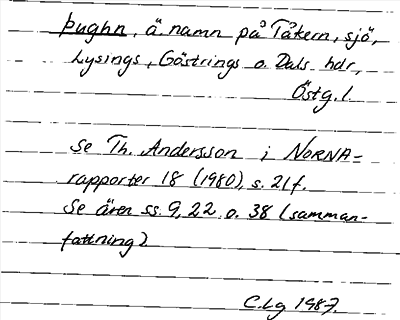 þughn, ä. namn på Tåkern, sjö,
Lysings, Göstrings o. Dals hdr,
Östg.l.
Se Th. Andersson i NORNA-
rapporter 18 (1980), s. 21f.
Se även ss. 9, 22 o. 38 (samman-
fattning)
C.Lg 1987.